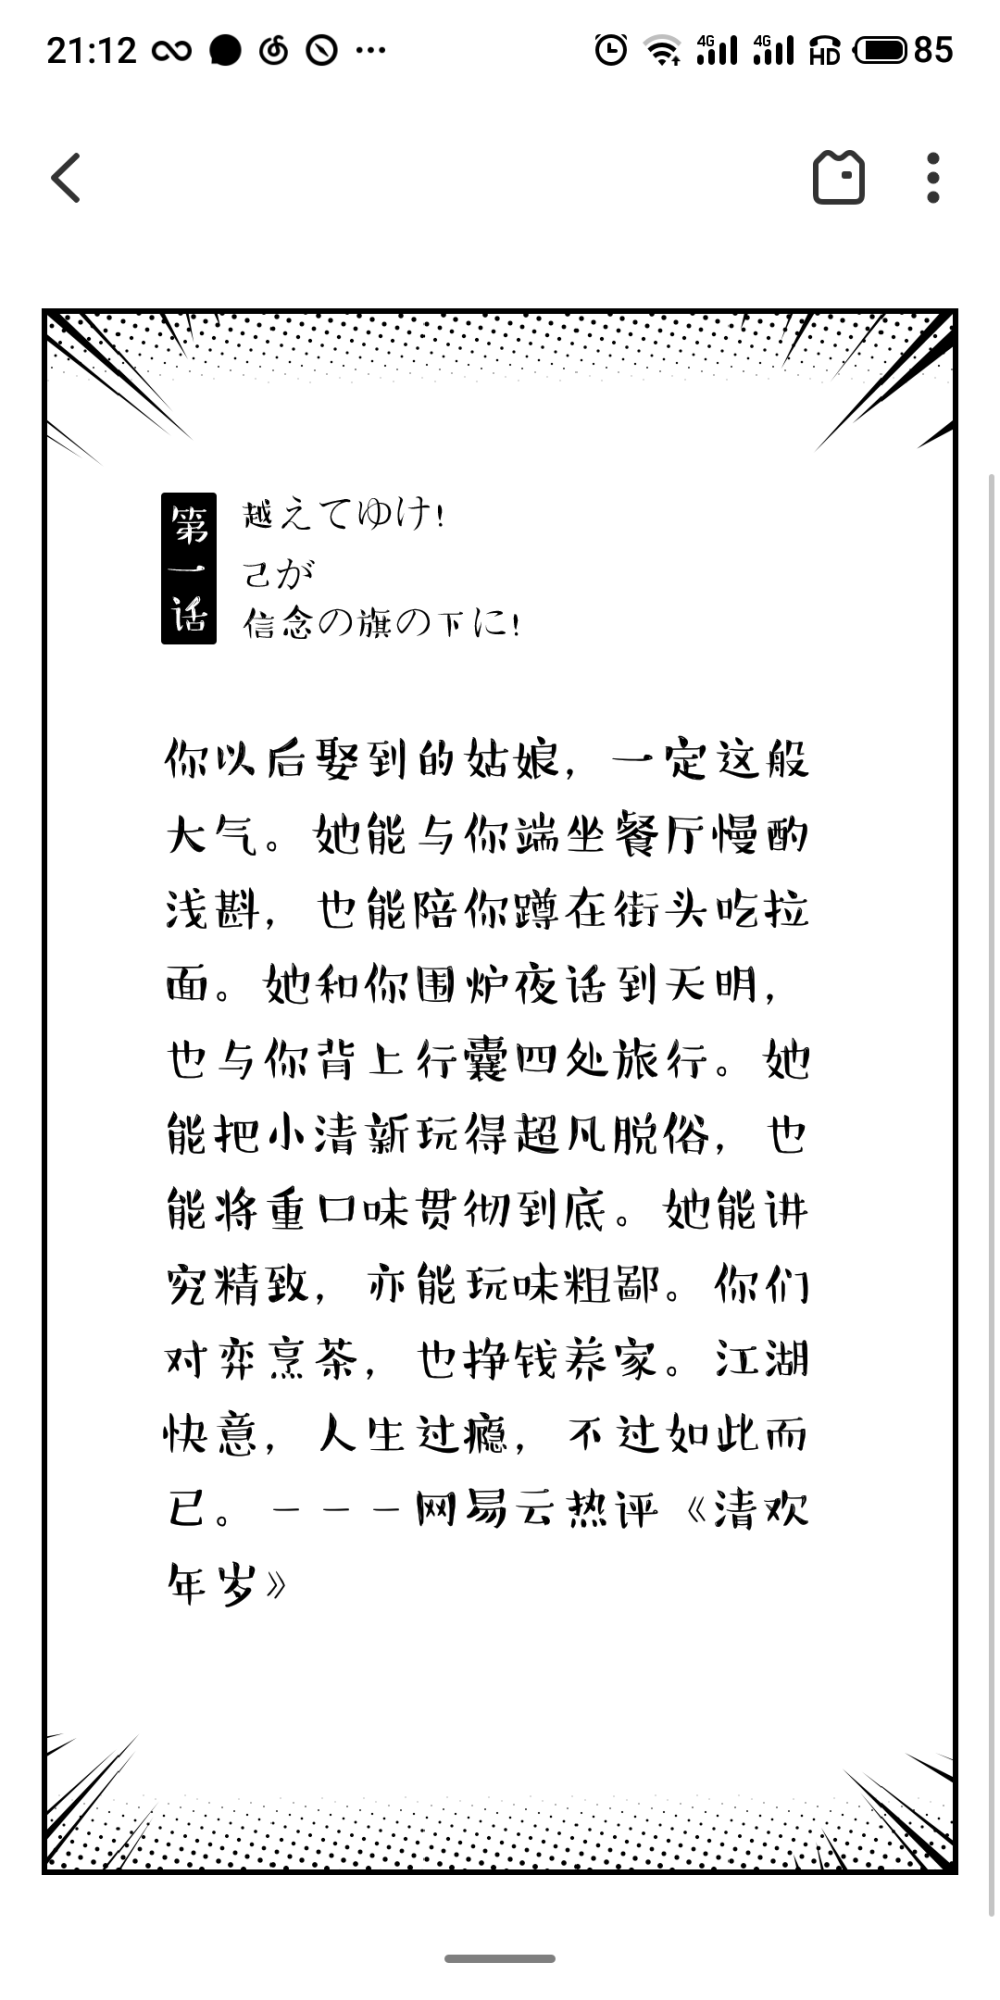 21:12 4G 4G HD 85
第一话
越えてゆけ!
己が
信念の旗の下に!
你以后娶到的姑娘，一定这般
大气。她能与你端坐餐厅慢酌
浅斟，也能陪你蹲在街头吃拉
面。她和你围炉夜话到天明，
也与你背上行囊四处旅行。她
能把小清新玩得超凡脱俗，也
能将重口味贯彻到底。她能讲
究精致，亦能玩味粗鄙。你们
对弈烹茶，也挣钱养家。江湖
快意，人生过瘾，不过如此而
已。－－－网易云热评《清欢
年岁》